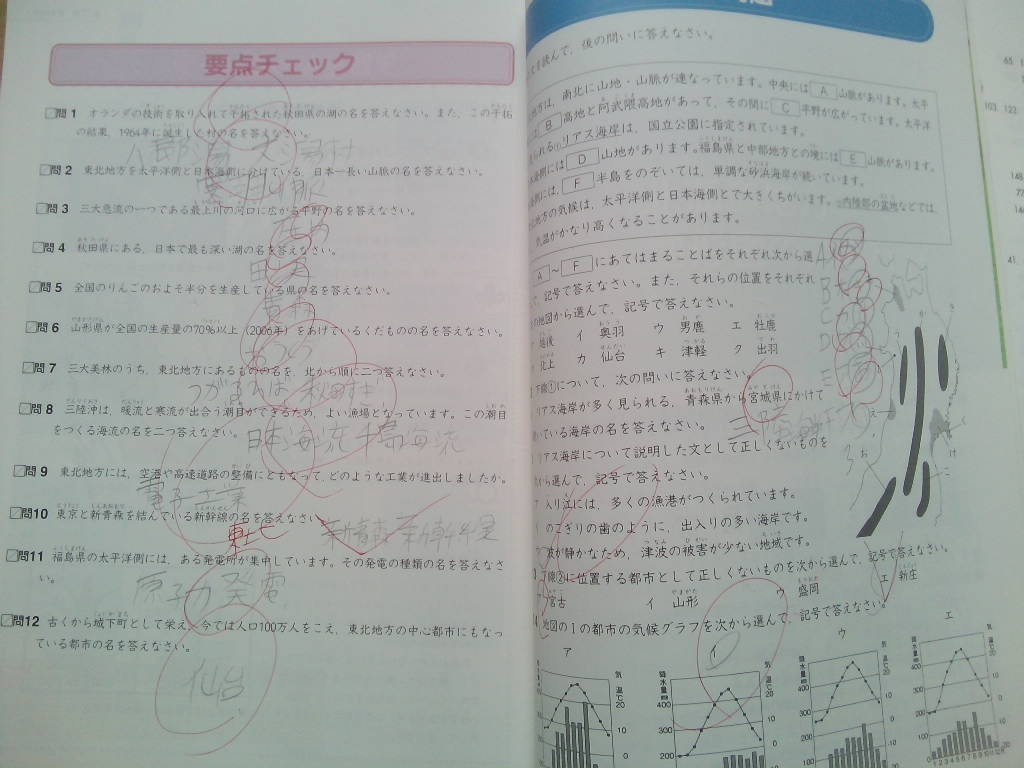 要点チェック
問1 オランダの技術を取り入れて干拓された秋田県の湖の名を答えなさい。また、この干拓
の結果、1964年に誕生した村の名を答えなさい。
八郎潟 大潟村
問2 東北地方を太平洋側と日本海側に分けている、日本一長い山脈の名を答えなさい。
山脈
問3 三大急流の一つである最上川の河口に広がる平野の名を答えなさい。
問4 秋田県にある、日本で最も深い湖の名を答えなさい。
問5 全国のりんごのおよそ半分を生産している県の名を答えなさい。
青森
問6 山形県が全国の生産量の70%以上(2006年)をあげているくだものの名を答えなさい。
問7 三大美林のうち、東北地方にあるものの名を、北から順に二つ答えなさい。
秋田杉
問8 三陸沖は、暖流と寒流が出合う潮目ができるため、よい漁場となっています。この潮目
をつくる海流の名を二つ答えなさい。
日本海流 千島海流
問9 東北地方には、空港や高速道路の整備にともなって、どのような工業が進出しましたか。
電子工業
問10 東京と新青森を結んでいる新幹線の名を答えなさい。
東北 新青森新幹線
問11 福島県の太平洋側には、ある発電所が集中しています。その発電の種類の名を答えなさ
い。
原子力発電
問12 古くから城下町として栄え、今では人口100万人をこえ、東北地方の中心都市にもなっ
ている都市の名を答えなさい。
仙台
を読んで、後の問いに答えなさい。
地方は、南北に山地・山脈が連なっています。中央には A 山脈があります。太平
B 高地と阿武隈高地があって、その間に C 平野が広がっています。太平洋
られる①リアス海岸は、国立公園に指定されています。
海側には D 山地があります。福島県と中部地方との境には E 山脈があります。
海側には、 F 半島をのぞいては、単調な砂浜海岸が続いています。
地方の気候は、太平洋側と日本海側とで大きくちがいます。②内陸部の盆地などでは、
気温がかなり高くなることがあります。
A ~ F にあてはまることばをそれぞれ次から選
で、記号で答えなさい。また、それらの位置をそれぞれ
の地図から選んで、記号で答えなさい。
越後 イ 奥羽 ウ 男鹿 エ 牡鹿
北上 カ 仙台 キ 津軽 ク 出羽
下線①について、次の問いに答えなさい。
リアス海岸が多く見られる、青森県から宮城県にかけて
いている海岸の名を答えなさい。
リアス海岸について説明した文として正しくないものを
から選んで、記号で答えなさい。
入り江には、多くの漁港がつくられています。
のこぎりの歯のように、出入りの多い海岸です。
波が静かなため、津波の被害が少ない地域です。
下線②に位置する都市として正しくないものを次から選んで、記号で答えなさい。
宮古 イ 山形 ウ 盛岡 エ 新庄
地図の1の都市の気候グラフを次から選んで、記号で答えなさい。
ア イ ウ エ